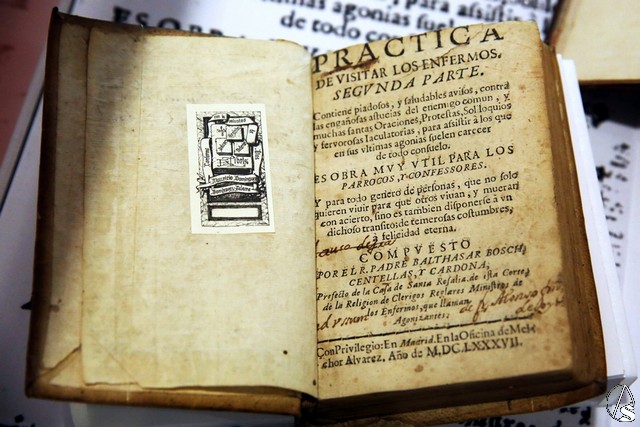 PRACTICA
DE VISITAR LOS ENFERMOS.
SEGVNDA PARTE.
Contiene piadosos, y saludables avisos, contra
las engañosas astucias del enemigo comun, y
muchas santas Oraciones, Protestas, Soliloquios
y fervorosas Iaculatorias, para assistir à los que
en sus vltimas agonias suelen carecer
de todo consuelo.
ES OBRA MVY VTIL PARA LOS
PARROCOS, Y CONFESSORES.
Y para todo genero de personas, que no solo
quieren viuir para que otros viuan, y mueran
con acierto, sino es tambien disponerse à vn
dichoso transito de temerosas costumbres,
à felicidad eterna.
COMPVESTO
POR EL R. PADRE BALTHASAR BOSCH,
CENTELLAS, Y CARDONA,
Prefecto de la Casa de Santa Rosalia de ista Corte,
de la Religion de Clerigos Reglares Ministros de
los Enfermos, que llaman
Agonizantes.
Con Privilegio: En Madrid. En la Oficina de Mel-
chor Alvarez, Año de M.DC.LXXXVII.
agonias suelen
de todo con